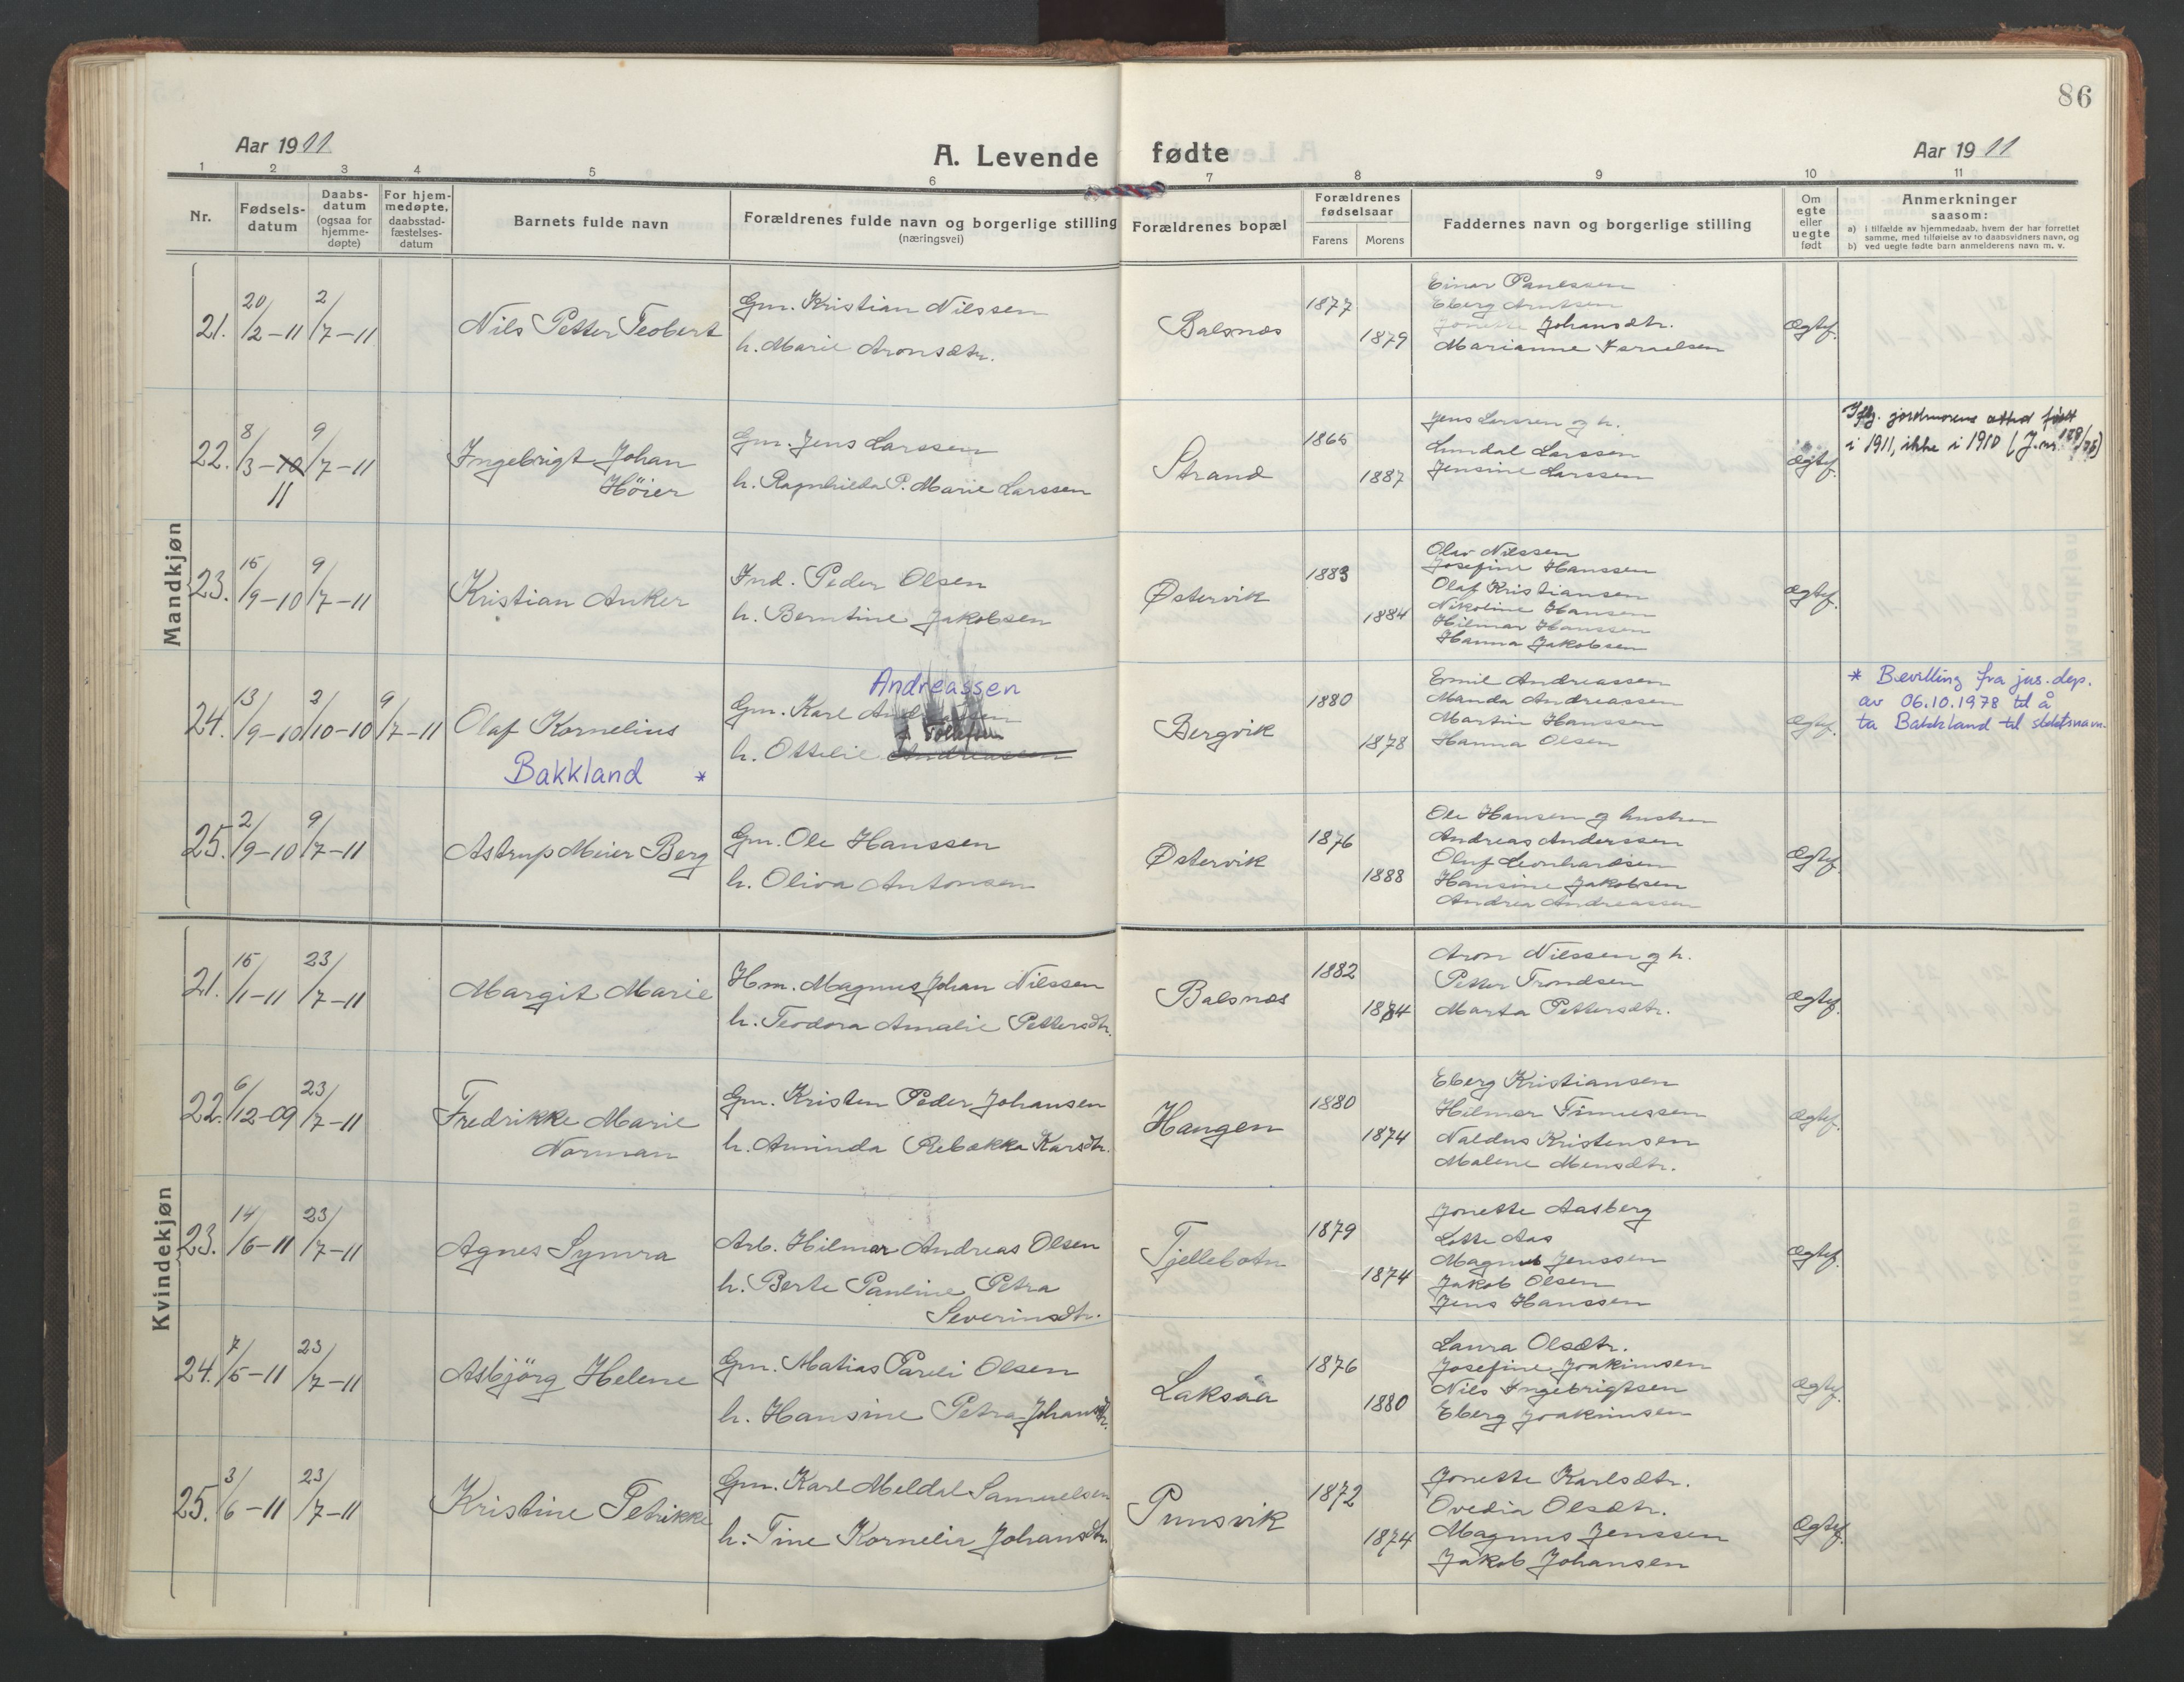 86
Aar 1911
A. Levende fødte
Aar 1911
1 2 3 4 5 6 7 8 9 10 11
Nr.
Fødsels-
datum
Daabs-
datum
(ogsaa for
hjemme-
døpte)
For hjem-
medøpte,
daabsstad-
fæstelses-
datum
Barnets fulde navn
Forældrenes fulde navn og borgerlige stilling
(næringsvei)
Forældrenes bopæl
Forældrenes
fødselsaar
Farens Morens
Faddernes navn og borgerlige stilling
Om
egte
eller
uegte
født
Anmerkninger
saasom:
a) i tilfælde av hjemmedaab, hvem der har forrettet
samme, med tilføielse av to daabsvidners navn, og
b) ved uegte fødte barn anmelderens navn m. v.
Mandkjøn
21. 20/2-11 2/7-11
Nils Petter Teobert
Gm. Kristian Nilssen
h. Marie Aronsdtr.
Balsnes
1877
1879
Einar Paulssen
Eberg Arntsen
Jonette Johansdtr.
Marianne Israelsen
Ægtef.
22. 8/3-10 9/7-11
11
Ingebrigt Johan
Höier
Gm. Jens Larssen
h. Ragnhilda P. Marie Larssen
Strand
1865
1887
Jens Larssen og h.
Lundal Larssen
Jensine Larssen
Ægtef.
Iflg. jordmorens attest født
i 1911, ikke i 1910 (J.nr. 128/76)
23. 15/9-10 9/7-11
Kristian Anker
Ind. Peder Olsen
h. Berntine Jakobsen
Østervik
1883
1884
Olav Nilssen
Josefine Hanssen
Olaf Kristiansen
Nikoline Hansen
Hilmar Hanssen
Hanna Jakobsen
Ægtef.
24. 13/9-10 2/10-10 9/7-11
Olaf Kornelius
Bakkland *
Andreassen
Gm. Karl Andreassen
Tollefsen
h. Ottelie Andreassen
Bergvik
1880
1878
Emil Andreassen
Manda Andreassen
Martin Hanssen
Hanna Olsen
Ægtef.
* Bevilling fra jus.dep.
av 06.10.1978 til å
ta Bakkland til slektsnavn.
25. 2/9-10 9/7-11
Astrup Meier Berg
Gm. Ole Hanssen
h. Oliva Antonsen
Østervik
1876
1888
Ole Hansen og hustru
Andreas Anderssen
Oluf Leonhardsen
Hansine Jakobsen
Andrea Andreassen
Ægtef.
Kvindekjøn
21. 15/1-11 23/7-11
Margit Marie
Hm. Magnus Johan Nilssen
h. Teodora Amalie Pettersdtr.
Balsnes
1882
1884
Aron Nilssen og h.
Petter Trondsen
Marta Pettersdtr.
Ægtef.
22. 6/12-09 23/7-11
Fredrikke Marie
Norman
Gm. Kristen Peder Johansen
h. Aminda Rebekka Karsdtr.
Haugen
1880
1874
Eberg Kristiansen
Hilmar Timussen
Naldus Kristensen
Malene Monsdtr.
Ægtef.
23. 14/6-11 23/7-11
Agnes Symra
Arb. Hilmar Andreas Olsen
h. Berte Pauline Petra
Severinsdtr.
Tjellebotn
1879
1874
Jonette Aasberg
Lotte Aas
Magnus Jenssen
Jakob Olsen
Jens Hanssen
Ægtef.
24. 7/5-11 23/7-11
Asbjörg Helene
Gm. Matias Pareli Olsen
h. Hansine Petra Johansdtr.
Laksaa
1876
1880
Laura Olsdtr.
Josefine Joakimsen
Nils Ingebrigtsen
Eberg Joakimsen
Ægtef.
25. 3/6-11 23/7-11
Kristine Petrikke
Gm. Karl Meldal Samuelsen
h. Tine Kornelia Johansdtr.
Punsvik
1872
1874
Jonette Karlsdtr.
Ovedia Olsdtr.
Magnus Jenssen
Jakob Johansen
Ægtef.